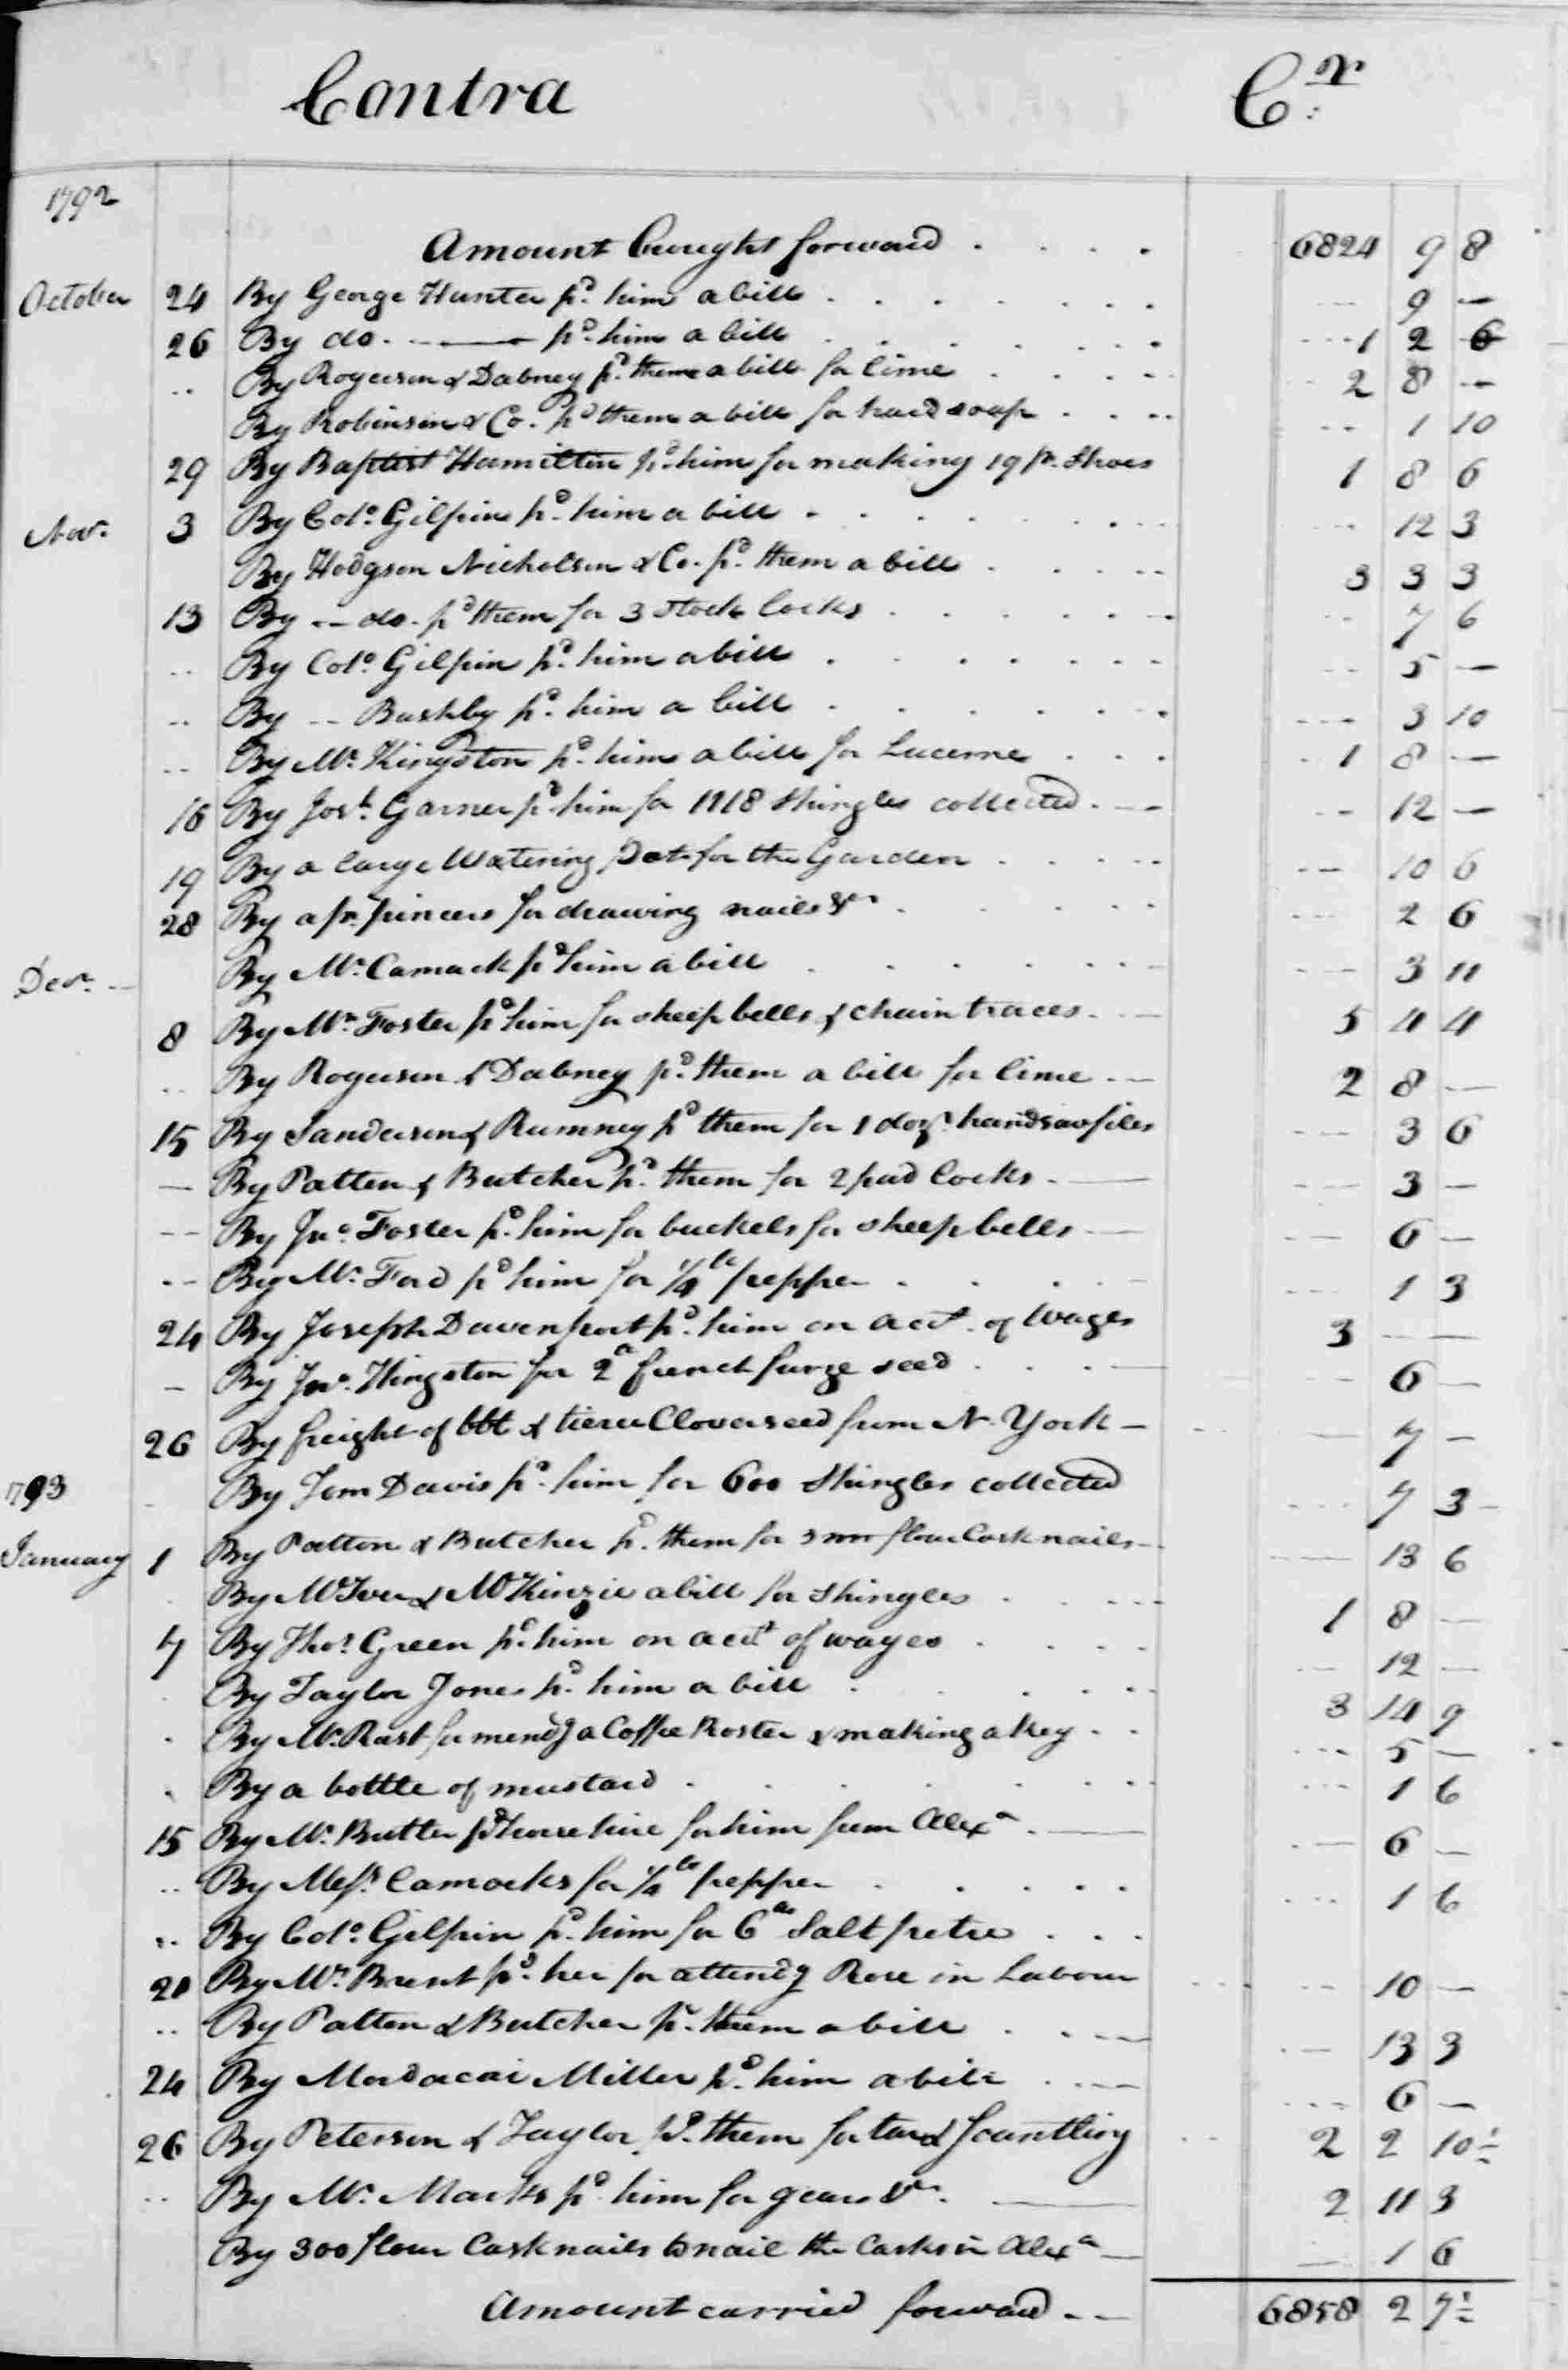 Contra Cr.
1792
Amount brought forward . . . . 6824 9 8
October 24 By George Hunter pd. him a bill . . . . . . . -- 9 —
26 By do. —— pd. him a bill . . . . . . . 1 2 6
.. By Rogerson & Dabney pd. them a bill for lime . . . . 2 8 —
By Robinson & Co. pd them a bill for hard soap . . .. -- 1 10
29 By Baptist Hamilton pd. him for making 19 pr. Shoes 1 8 6
Nov. 3 By Colo. Gilpin pd. him a bill . . . . . . . -- 12 3
By Hodgson Nicholson & Co. pd. them a bill . . . . 3 3 3
13 By -- do. pd them for 3 stock locks . . . . . . -- 7 6
.. By Colo. Gilpin pd. him a bill . . . . . . . -- 5 —
.. By -- Bushby pd. him a bill . . . . . . . -- 3 10
.. By Mr. Kingston pd. him a bill for Lucerne . . . 1 8 —
16 By Josh. Garner pd. him for 1118 Shingles collected . — -- 12 —
19 By a large Watering Pot for the Garden . . . .. -- 10 6
28 By a pr. pincers for drawing nails &c. . . . . . -- 2 6
Decr. -- By Mr. Camack pd him a bill . . . . . . . -- 3 11
8 By Mr. Foster pd him for sheep bells & chain traces . — 5 4 4
.. By Rogerson & Dabney pd. them a bill for lime . — 2 8 —
15 By Sanderson & Rumney pd them for 1 doz. handsaw files -- 3 6
— By Patten & Butcher pd. them for 2 pad locks . — -- 3 —
-- By Jno. Foster pd. him for buckels for sheep bells — -- 6 —
-- By Mr. Ford pd him for 1/4 lb pepper . . . . . -- 1 3
24 By Joseph Davenport pd. him on acct. of Wages 3 — —
— By Jno. Kingston for 2 lb french furze seed . . . — -- 6 —
26 By freight of bbl & tierce Cloverseed from N. York — -- 7 —
By Tom Davis pd. him for 600 Shingles collected -- 7 3 -
1793
January 1 By Patton & Butcher pd. them for 3 m flour Cask nails — -- 13 6
By McIver & McKinzie a bill for Shingles . . . . 1 8 —
7 By Thos. Green pd. him on acct of wages . . . . — 12 —
By Taylor Jones pd. him a bill . . . . . 3 14 9
. By Mr. Rust for mendg a Coffee Roster & making a key . . -- 5 —
. By a bottle of mustard . . . . . . . -- 1 6
15 By Mr. Butler pd horse hire for him from Alexa. — -- 6 —
.. By Messrs. Camocks for 1/4 lb pepper . . . . . -- 1 6
.. By Colo. Gilpin pd. him for 6 lbs Salt petre . . .
20 By Mrs. Brent pd. her for attendg Rose in Labour -- 10 —
.. By Patton & Butcher pd. them a bill . . . — — 13 3
24 By Mordacai Miller pd. him a bill . . — -- 6 —
26 By Peterson & Taylor pd. them for tar & Scantling 2 2 10½
.. By Mr. Marks pd. him for gears &c. —— 2 11 3
By 300 flour Cask nails to nail the Casks in Alexa — — 1 6
Amount carried forward . — 6858 2 7½